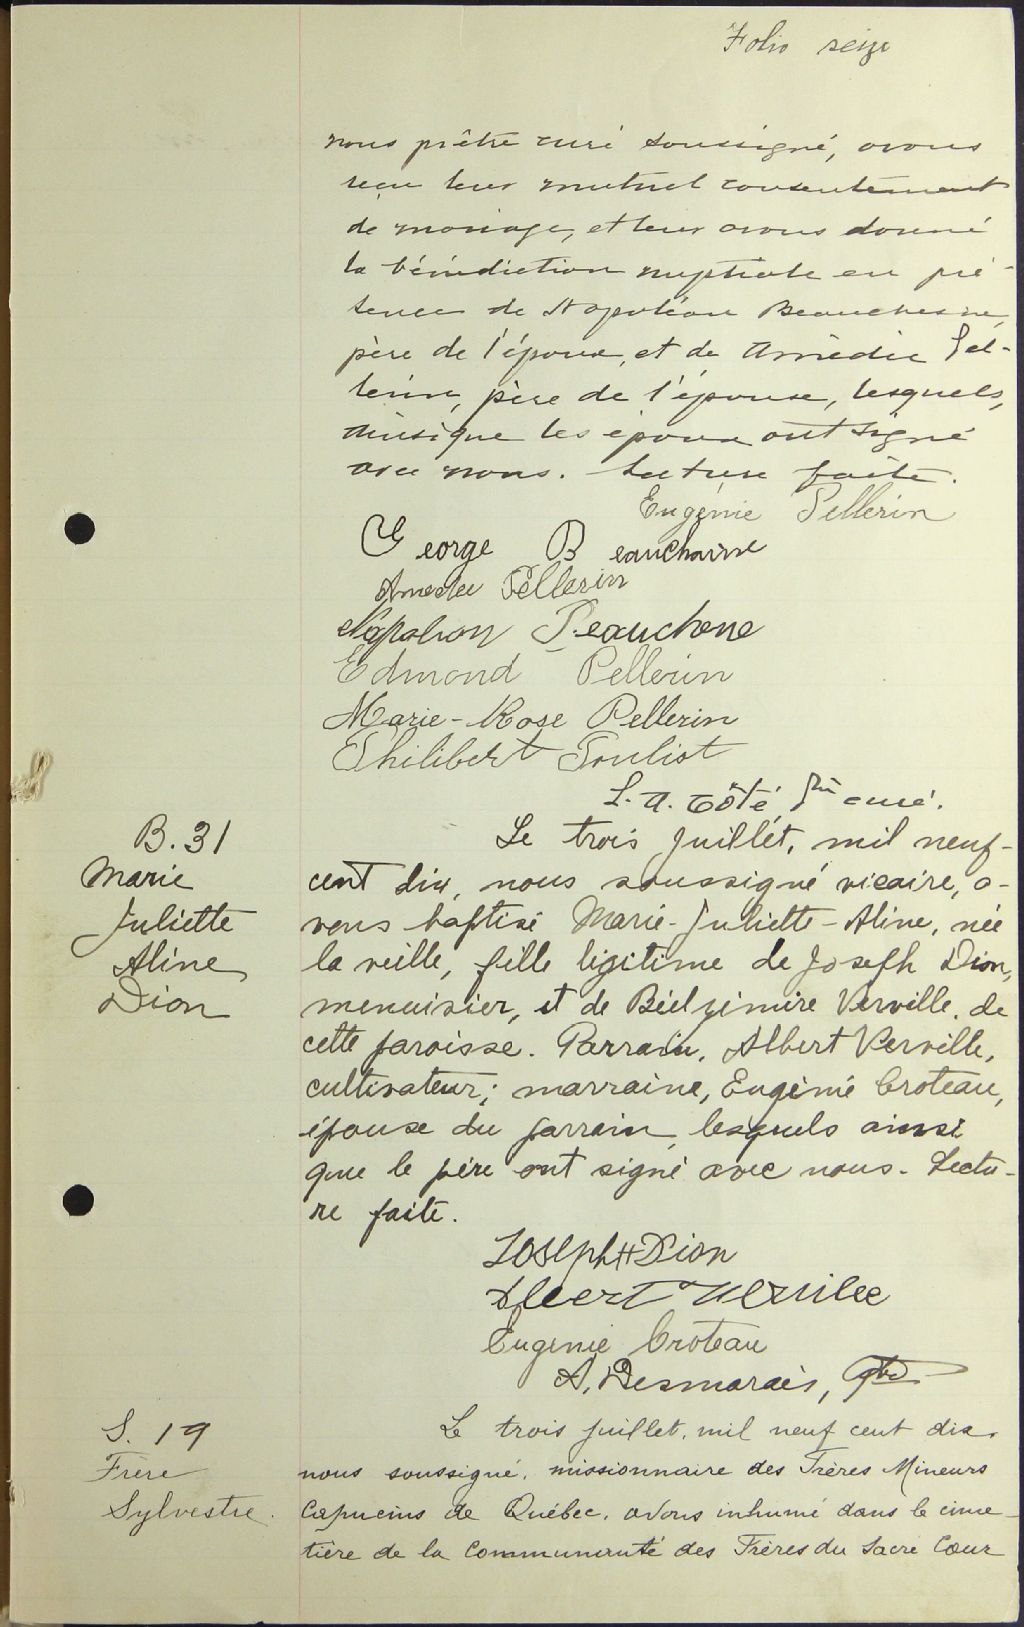 Folio seize
nous prêtre curé soussigné, avons
reçu leur mutuel consentement
de mariage, et leur avons donné
la bénédiction nuptiale en pré-
sence de Napoléon Beauchesne,
père de l'époux, et de Amédée Pel-
lerin, père de l'épouse, lesquels,
ainsi que les époux ont signé
avec nous. Lecture faite.
Eugénie Pellerin
George Beauchaine
Amedee Pellerin
Napolion Beauchene
Edmond Pellerin
Marie-Rose Pellerin
Philibert Pouliot
L. A. Côté, Ptre curé.
B. 31
Marie
Juliette
Aline
Dion
Le trois juillet, mil neuf-
cent dix, nous soussigné vicaire, a-
vons baptisé Marie-Juliette-Aline, née
la veille, fille légitime de Joseph Dion,
menuisier, et de Bielzimire Verville, de
cette paroisse. Parrain, Albert Verville,
cultivateur; marraine, Eugénie Croteau,
épouse du parrain, lesquels ainsi
que le père ont signé avec nous. Lectu-
re faite.
Joseph H Dion
Albert Verville
Eugenie Croteau
A. Desmarais, Ptre
S. 19
Frère
Sylvestre.
Le trois juillet, mil neuf cent dix,
nous soussigné, missionnaire des Frères Mineurs
Capucins de Québec, avons inhumé dans le cime-
tière de la Communauté des Frères du Sacré Cœur